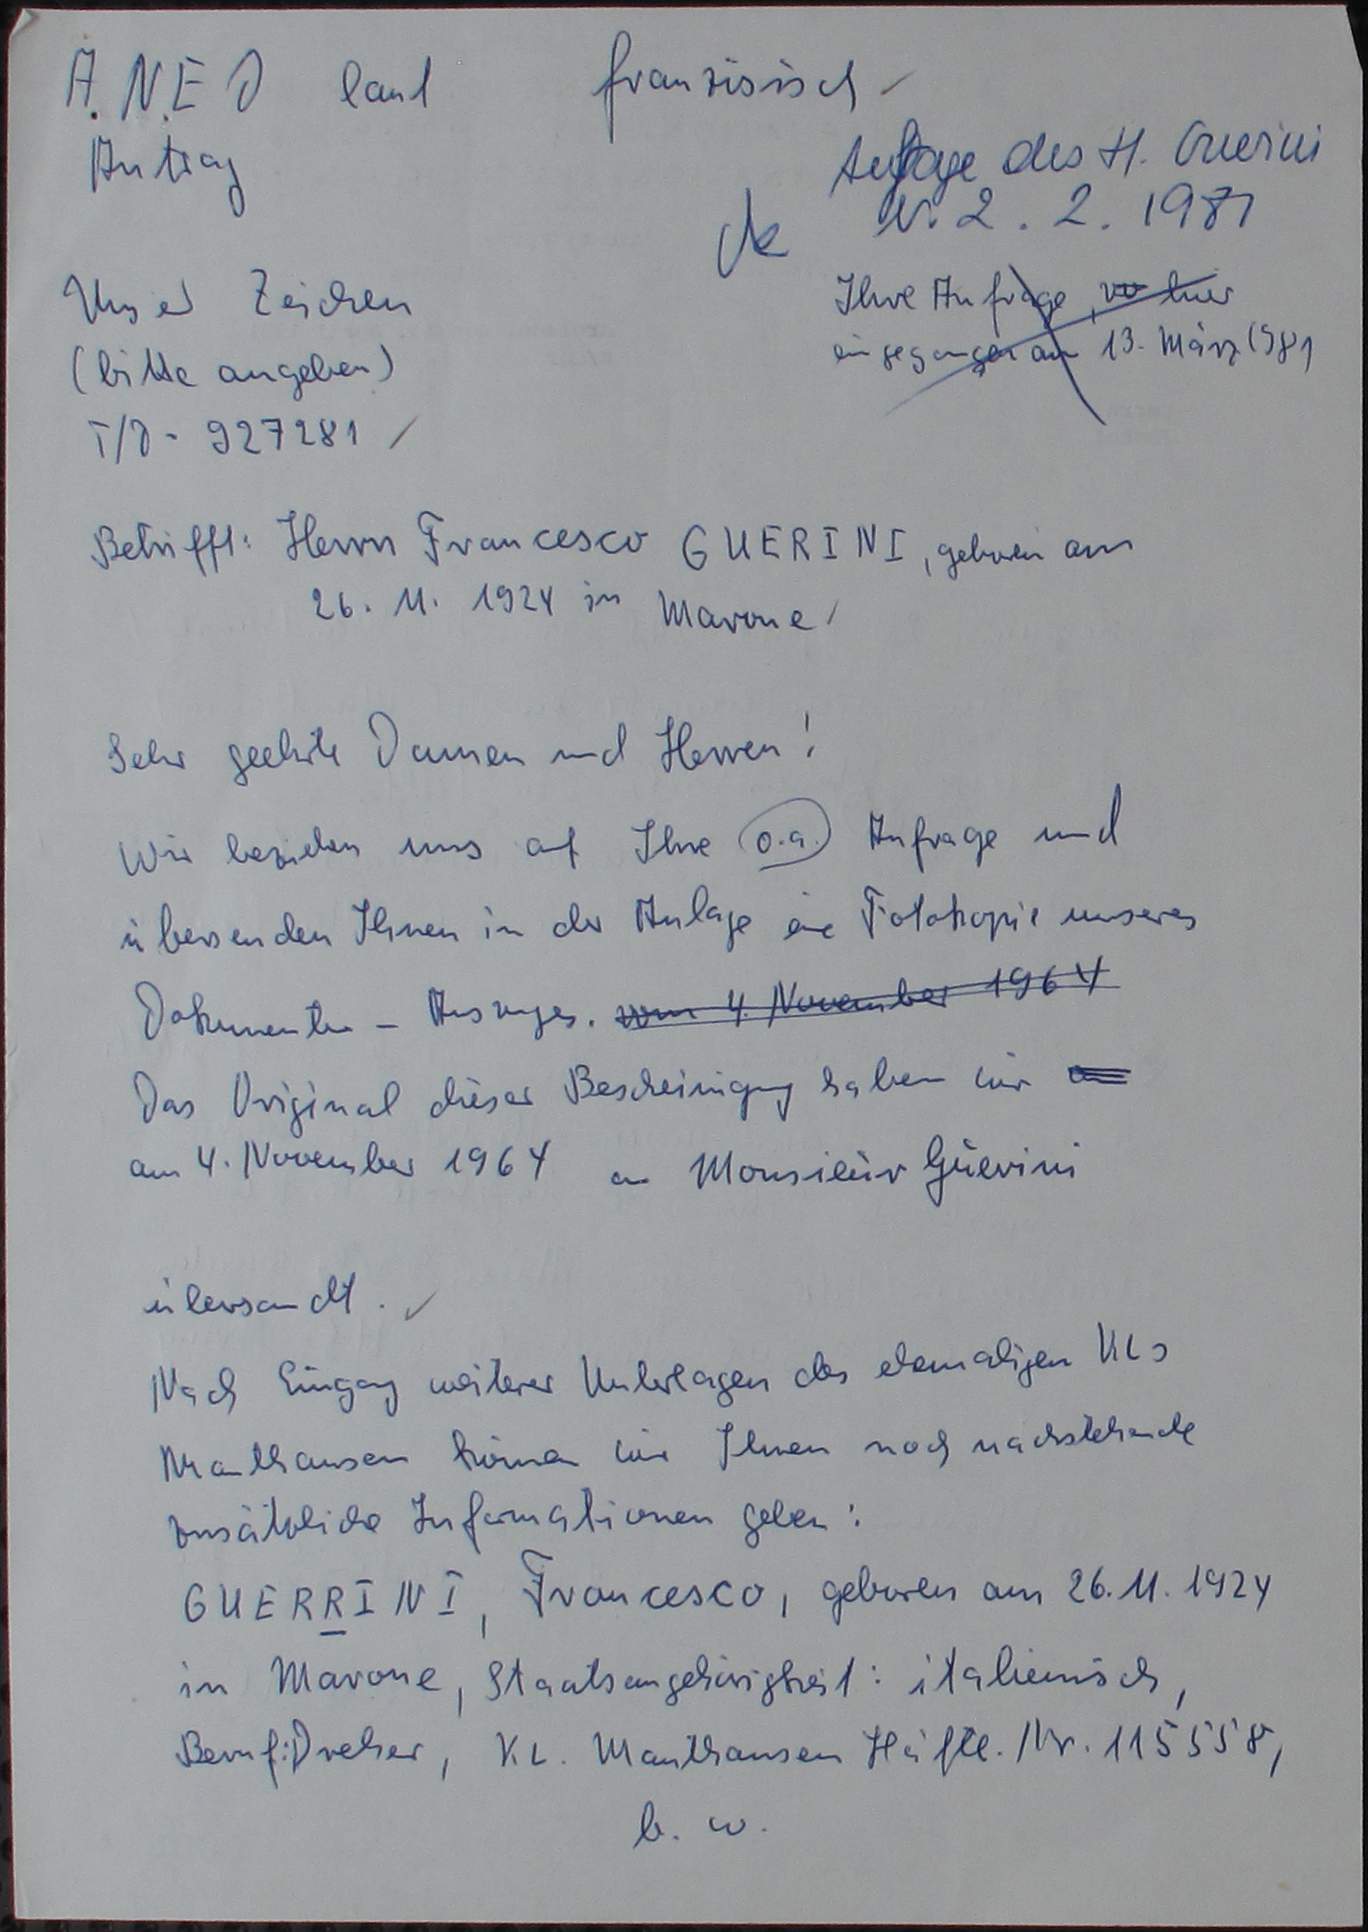 A.N.E.D laut französisch
Antrag
Anfrage des H. Guerini
v. 2. 2. 1981
Unser Zeichen
(bitte angeben)
T/D - 927281
Ihre Anfrage, wo hier
eingegangen am 13. März 1981
Betrifft: Herrn Francesco GUERINI, geboren am
26. 11. 1924 in Marone
Sehr geehrte Damen und Herren!
Wir beziehen uns auf Ihre o.a. Anfrage und
übersenden Ihnen in der Anlage eine Fotokopie unseres
Dokumenten - Auszuges. vom 4. November 1964
Das Original dieser Bescheinigung haben wir
am 4. November 1964 an Monsieur Guerini
übersandt.
Nach Eingang weiterer Unterlagen des ehemaligen KLs
Mauthausen können wir Ihnen noch nachstehende
zusätzliche Informationen geben:
GUERRINI, Francesco, geboren am 26.11.1924
in Marone, Staatsangehörigkeit: italienisch,
Beruf: Dreher, KL. Mauthausen Häftl. Nr. 115558,
b. w.